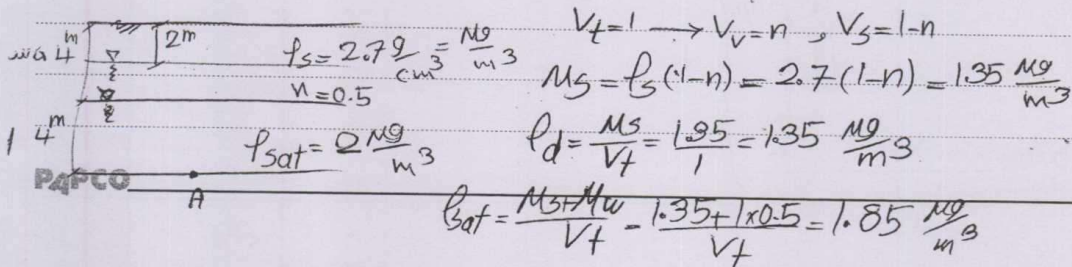 4m 2m ρs = 2.7 g/cm³ = Mg/m³
n = 0.5
4m ρsat = 2 Mg/m³
A
PAPCO
Vt = 1 → Vv = n , Vs = 1-n
Ms = ρs (1-n) = 2.7 (1-n) = 1.35 Mg/m³
ρd = Ms/Vt = 1.35/1 = 1.35 Mg/m³
ρsat = Ms+Mw/Vt = 1.35+1×0.5/Vt = 1.85 Mg/m³